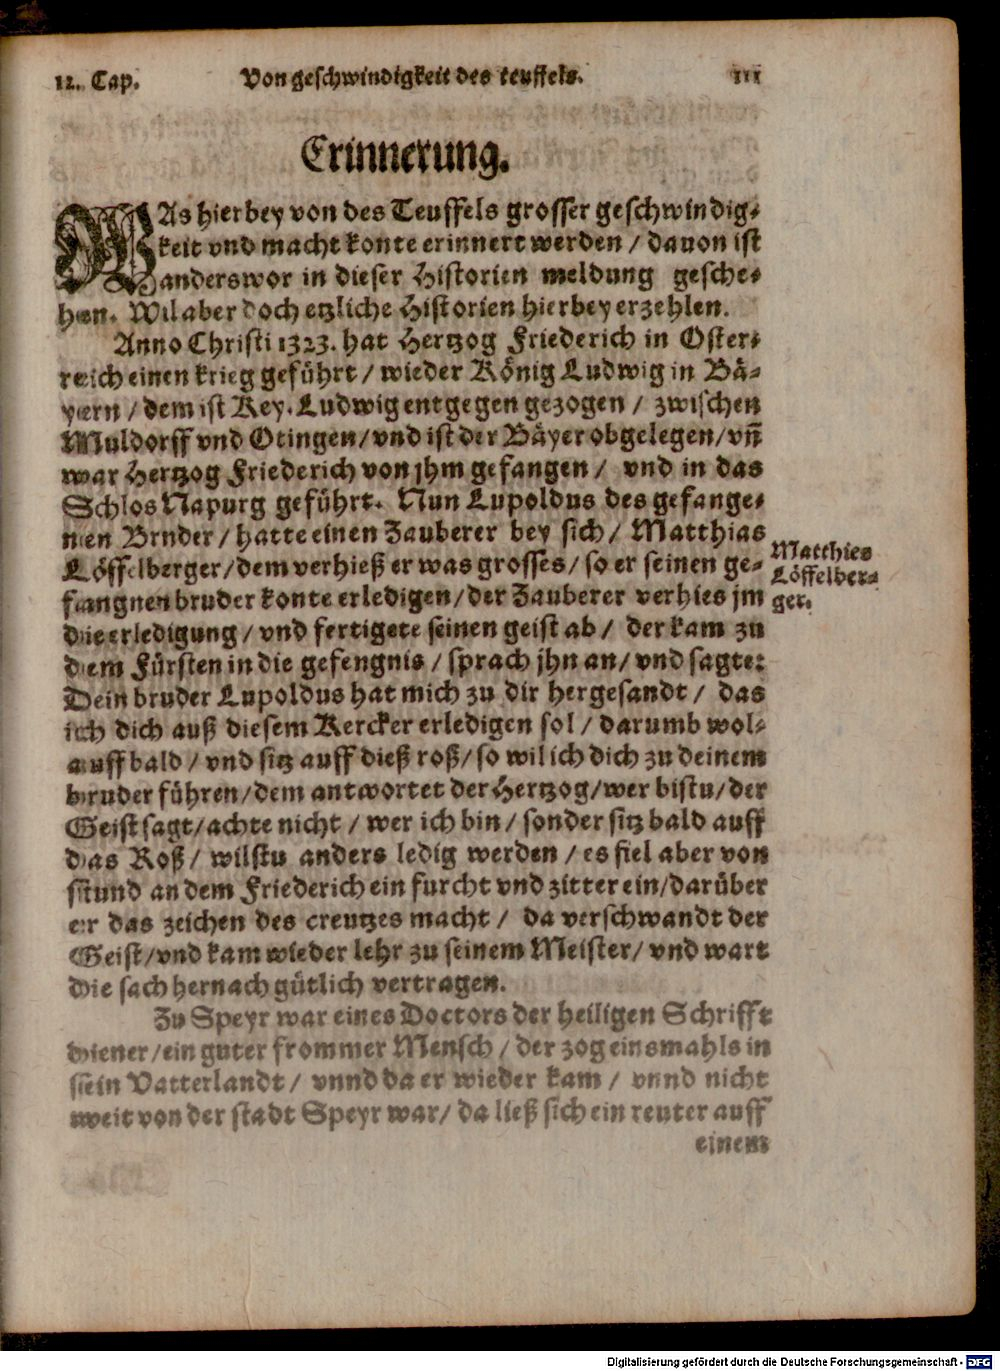 12. Cap. Von geschwindigkeit des teuffels. 111
Erinnerung.
WAs hierbey von des Teuffels grosser geschwindig-
keit vnd macht konte erinnert werden / dauon ist
anderswor in dieser Historien meldung gesche-
hen. Wil aber doch etzliche Historien hierbey erzehlen.
Anno Christi 1323. hat Hertzog Friederich in Oster-
reich einen krieg geführt / wieder König Ludwig in Bä-
yern / dem ist Key. Ludwig entgegen gezogen / zwischen
Muldorff vnd Otingen / vnd ist der Bäyer obgelegen / vñ
war Hertzog Friederich von jhm gefangen / vnd in das
Schlos Napurg geführt. Nun Lupoldus des gefange-
nen Brnder / hatte einen Zauberer bey sich / Matthias
Löffelberger / dem verhieß er was grosses / so er seinen ge-
fangnen bruder konte erledigen / der Zauberer verhies jm
die erledigung / vnd fertigete seinen geist ab / der kam zu
dem Fürsten in die gefengnis / sprach jhn an / vnd sagte:
Dein bruder Lupoldus hat mich zu dir hergesandt / das
ich dich auß diesem Kercker erledigen sol / darumb wol-
auff bald / vnd sitz auff dieß roß / so wil ich dich zu deinem
bruder führen / dem antwortet der Hertzog / wer bistu / der
Geist sagt / achte nicht / wer ich bin / sonder sitz bald auff
das Roß / wilstu anders ledig werden / es fiel aber von
stund an dem Friederich ein furcht vnd zitter ein / darüber
er das zeichen des creutzes macht / da verschwandt der
Geist / vnd kam wieder lehr zu seinem Meister / vnd wart
die sach hernach gütlich vertragen.
Zu Speyr war eines Doctors der heiligen Schrifft
diener / ein guter frommer Mensch / der zog einsmahls in
sein Vatterlandt / vnnd da er wieder kam / vnnd nicht
weit von der stadt Speyr war / da ließ sich ein reuter auff
einem
Matthies
Löffelber-
ger.
Digitalisierung gefördert durch die Deutsche Forschungsgemeinschaft - DFG